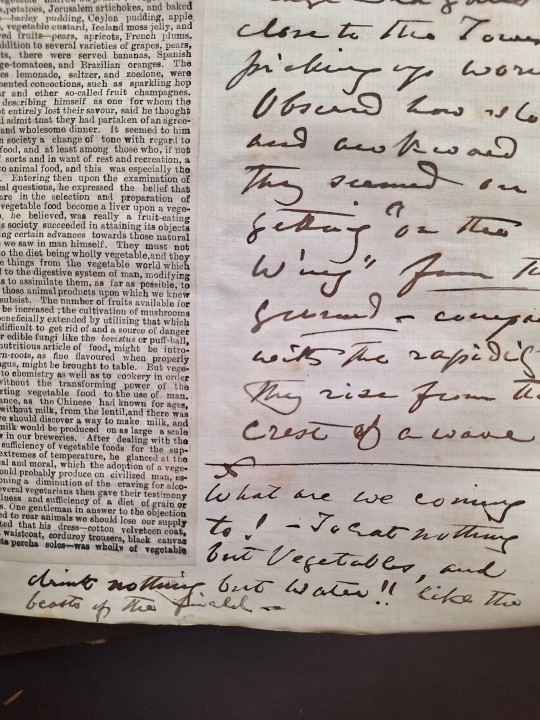 potatoes, Jerusalem artichokes, and baked
barley pudding, Ceylon pudding, apple
vegetable custard, Iceland moss jelly, and
ved fruits—pears, apricots, French plums.
ddition to several varieties of grapes, pears,
ts, there were served bananas, Spanish
ge-tomatoes, and Brazilian oranges. The
es lemonade, seltzer, and zoedone, were
mented concoctions, such as sparkling hop
r and other so-called fruit champagnes,
describing himself as one for whom the
t entirely lost their savour, said he thought
admit that they had partaken of an agree-
and wholesome dinner. It seemed to him
n society a change of tone with regard to
food, and at least among those who, if not
sorts and in want of rest and recreation, a
o animal food, and this was especially the
Entering then upon the examination of
al questions, he expressed the belief that
are in the selection and preparation of
vegetable food become a liver upon a vege-
, he believed, was really a fruit-eating
s society succeeded in attaining its objects
ng certain advances towards those natural
we saw in man himself. They must not
to the diet being wholly vegetable, and they
e things from the vegetable world which
d to the digestive system of man, modifying
s to assimilate them, as far as possible, to
those animal products upon which we knew
subsist. The number of fruits available for
be increased; the cultivation of mushrooms
eneficially extended by utilizing that which
difficult to get rid of and a source of danger
r edible fungi like the bovistus or puff-ball,
nutritious article of food, might be intro-
rn-roots, as fine flavoured when properly
agus, might be brought to table. But vege-
to chemistry as well as to cookery in order
without the transforming power of the
rting vegetable food to the use of man.
ance, as the Chinese had known for ages,
without milk, from the lentil, and there was
we should discover a way to make milk, and
milk would be produced on as large a scale
w in our breweries. After dealing with the
sufficiency of vegetable foods for the sup-
extremes of temperature, he glanced at the
al and moral, which the adoption of a vege-
ould probably produce on civilized man, es-
oning a diminution of the craving for alco-
everal vegetarians then gave their testimony
lness and sufficiency of a diet of grain or
s. One gentleman in answer to the objection
ed to rear animals we should lose our supply
ted that his dress—cotton velveteen coat,
waistcoat, corduroy trousers, black canvas
tta percha soles—was wholly of vegetable
close to the Tower
picking up wor
Observd how slo
and awkward
they seemed in
getting "on the
Wing" from th
ground - compa
with the rapidity
they rise from the
crest of a wave
What are we coming
to! - To eat nothing
but Vegetables, and
drink nothing but water!! like the
beasts of the field -